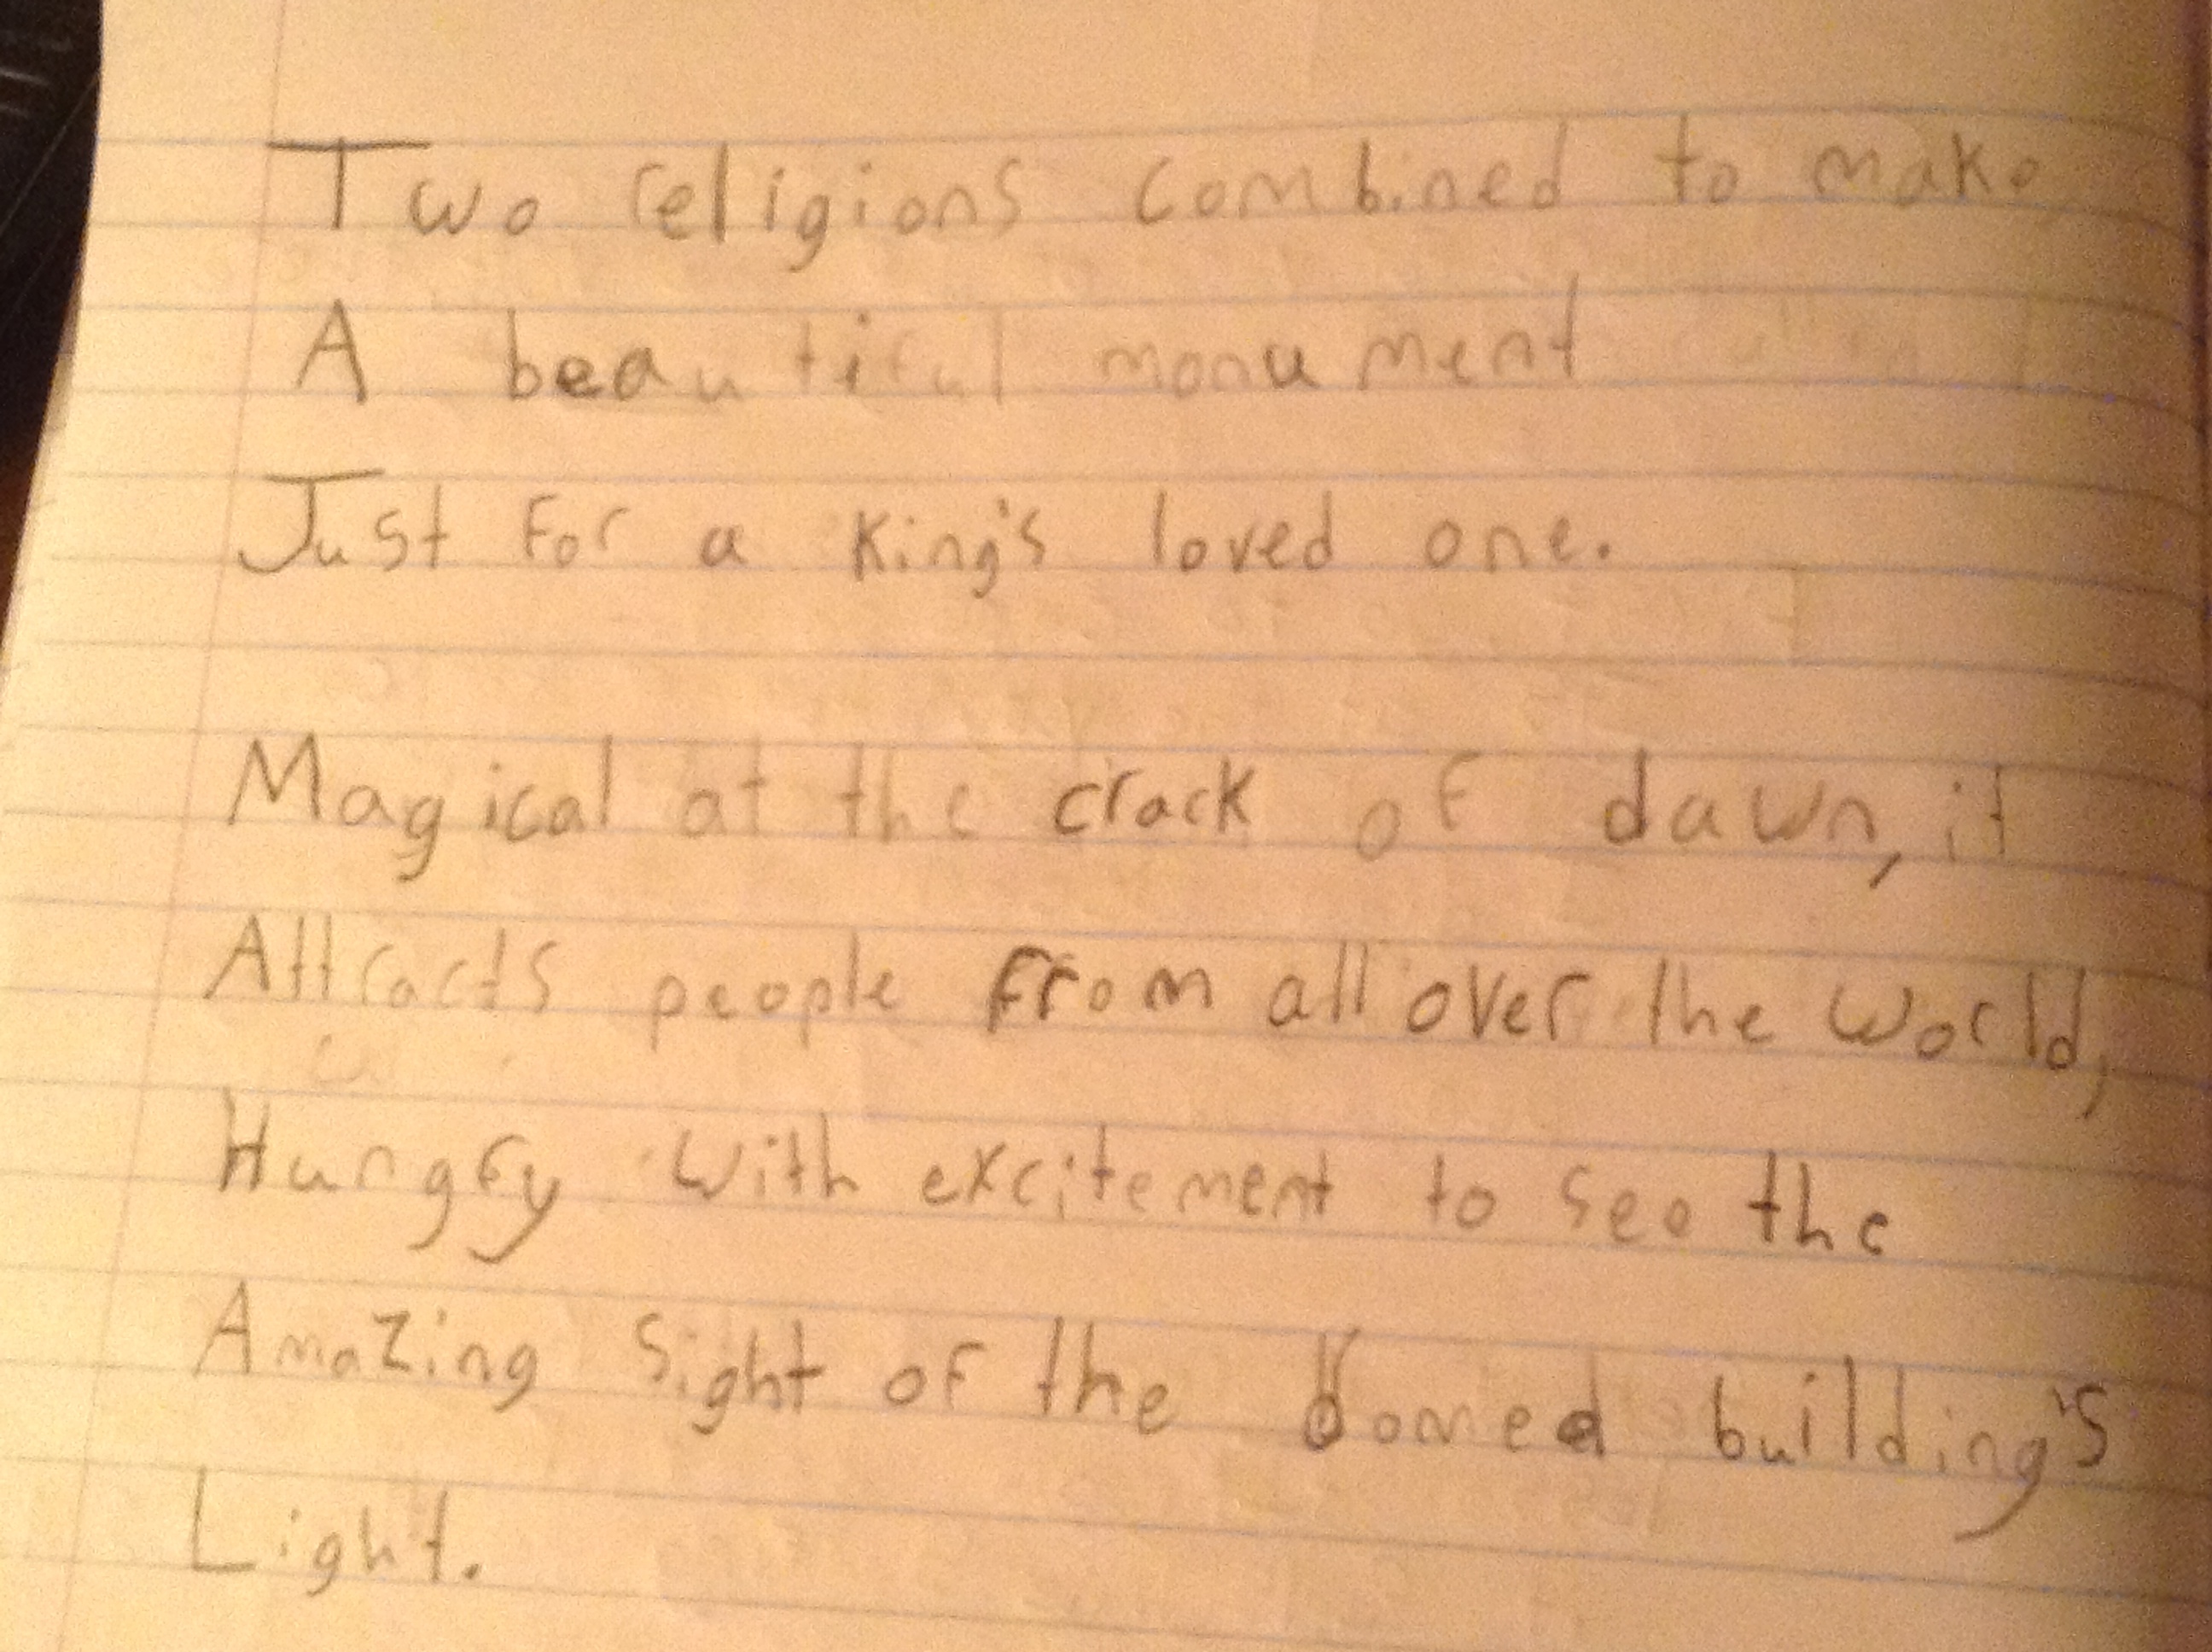 Two religions combined to make
A beautiful monument
Just for a king's loved one.
Magical at the crack of dawn, it
Attracts people from all over the world,
Hungry with excitement to see the
Amazing sight of the domed building's
Light.